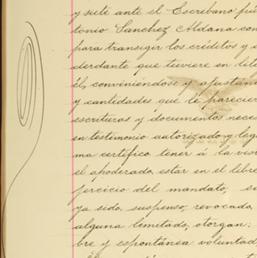 y siete ante el Escribano pú
tonio Sanchez Aldana con
para transigir los créditos y
derdante que tuviere en
él, conviniéndose y ajustan
y cantidades que le parecier
escrituras y documentos nece
en testimonio autorizado y leg
ma certifico tener á la vis
el apoderado estar en el libre
jercicio del mandato, s
ya sido, suspenso, revocada
alguna limitado, otorgan:
bre y espontánea voluntad